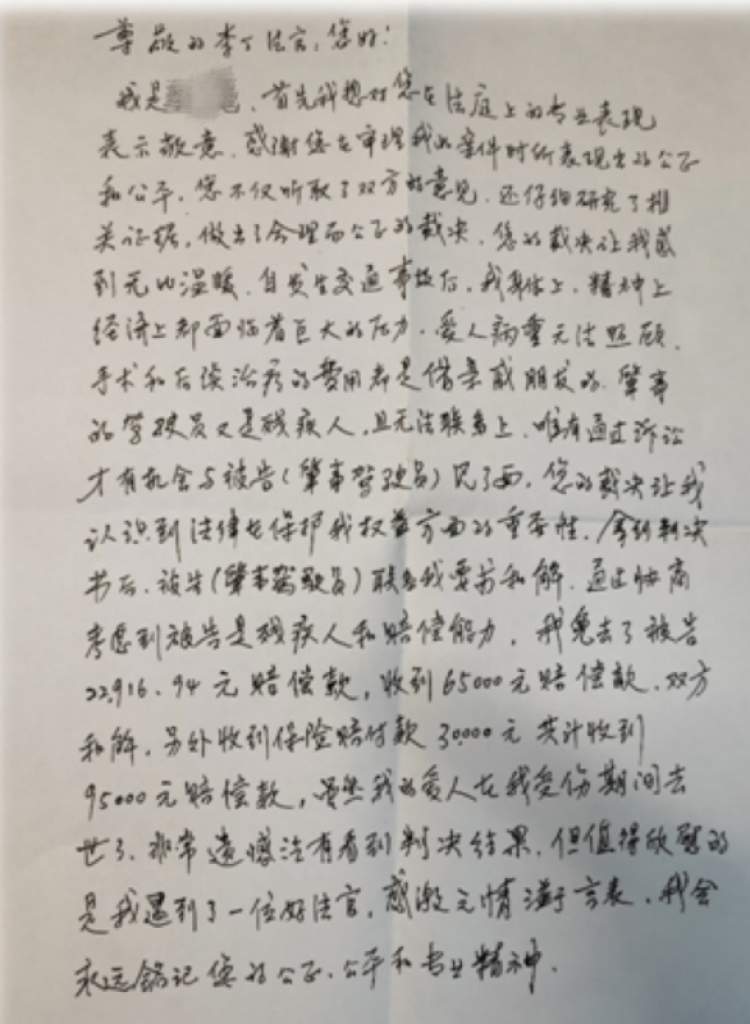 尊敬的李丁法官,您好!
我是 ,首先我想对您在法庭上的专业表现
表示敬意,感谢您在审理我的案件时所表现出的公正
和公平,您不仅听取了双方的意见,还仔细研究了相
关证据,做出了合理而公正的裁决,您的裁决让我感
到无比温暖,自发生交通事故后,我身体上,精神上
经济上都面临着巨大的压力,爱人病重无法照顾,
手术和后续治疗的费用都是借亲戚朋友的,肇事
的驾驶员又是残疾人,且无法联系上,唯有通过诉讼
才有机会与被告(肇事驾驶员)见了面,您的裁决让我
认识到法律在保护我权益方面的重要性,拿到判决
书后,被告(肇事驾驶员)联系我要求和解,通过协商
考虑到被告是残疾人和赔偿能力,我免去了被告
22,916.94元赔偿款,收到65000元赔偿款,双方
和解,另外收到保险赔付款30,000元共计收到
95000元赔偿款,虽然我的爱人在我受伤期间去
世了,非常遗憾没有看到判决结果,但值得欣慰的
是我遇到了一位好法官,感激之情溢于言表,我会
永远铭记您的公正、公平和专业精神.